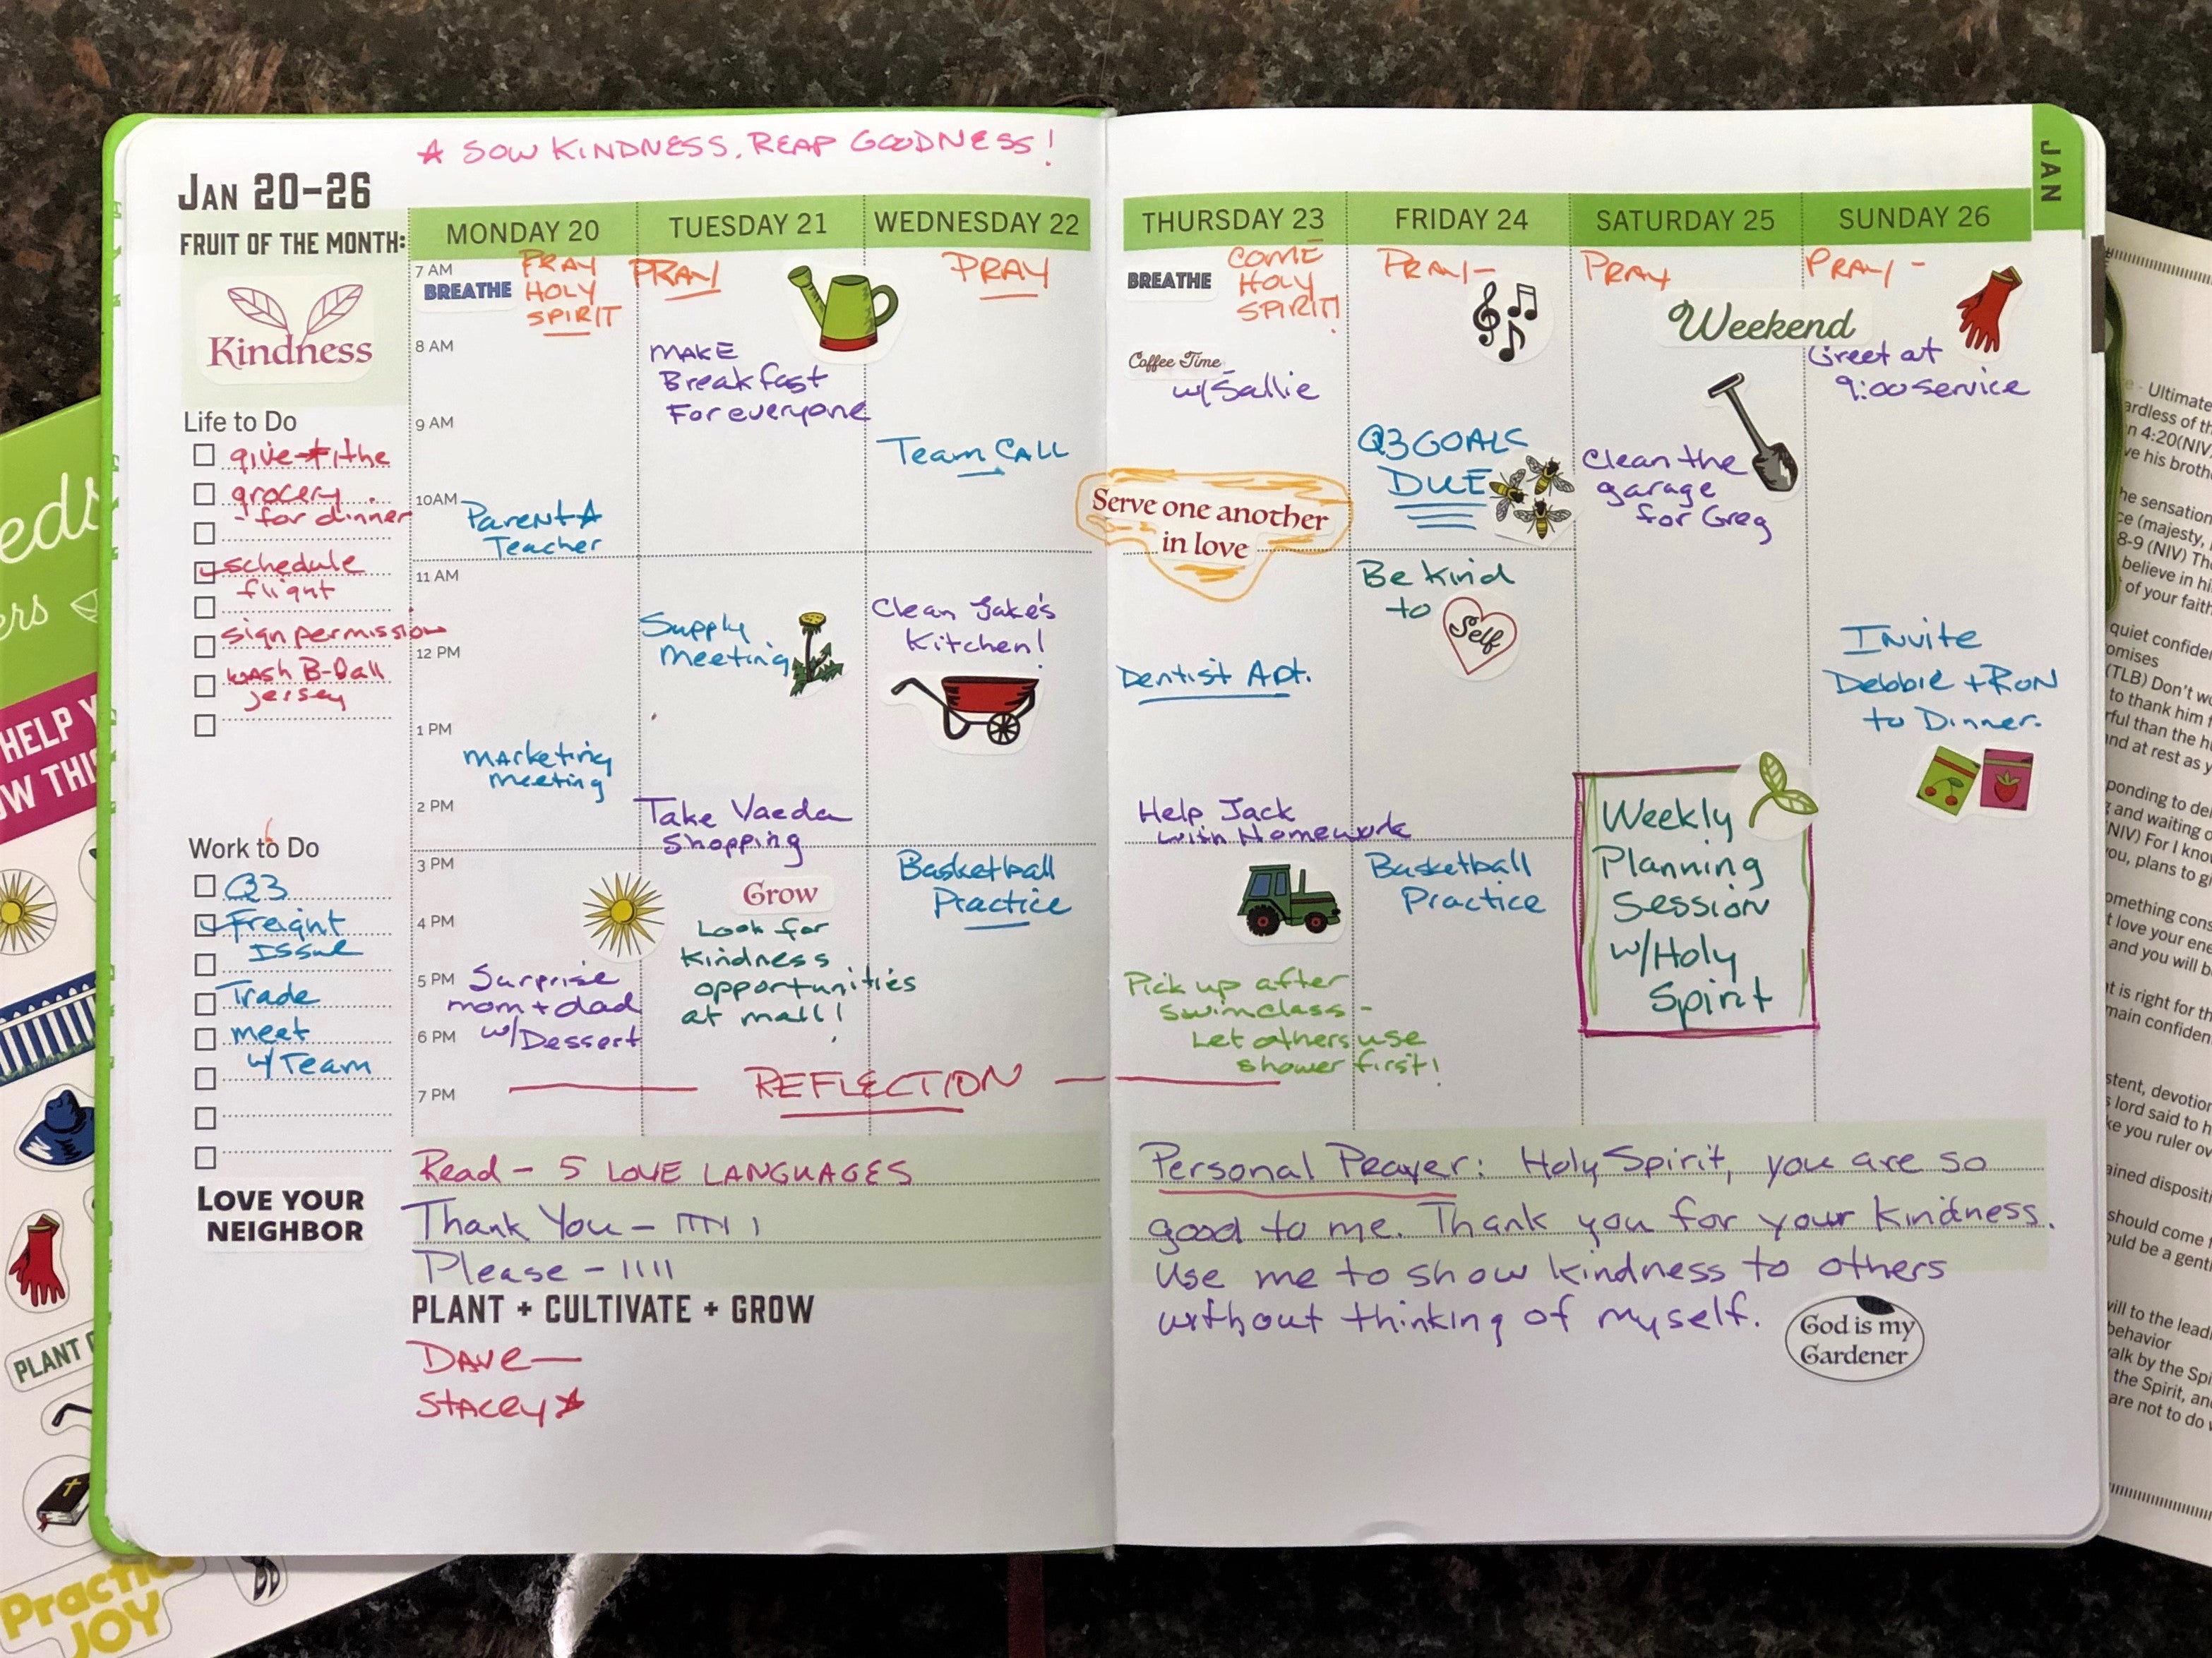 ☆ SOW KINDNESS. REAP GOODNESS!
JAN 20-26
FRUIT OF THE MONTH:
Kindness
Life to Do
give tithe
grocery
- for dinner
schedule
flight
sign permission
wash B-Ball
jersey
Work to Do
Q3
Freight
Issue
Trade
meet
w/Team
LOVE YOUR
NEIGHBOR
MONDAY 20
TUESDAY 21
WEDNESDAY 22
7 AM
8 AM
9 AM
10AM
11 AM
12 PM
1 PM
2 PM
3 PM
4 PM
5 PM
6 PM
7 PM
BREATHE
PRAY
HOLY
SPIRIT
Parent
Teacher
Marketing
Meeting
Surprise
mom + dad
w/Dessert
PRAY
MAKE
Breakfast
For everyone
Supply
Meeting
Take Vaeda
Shopping
Grow
Look for
kindness
opportunities
at mall!
PRAY
Team CALL
Clean Jake's
Kitchen!
Basketball
Practice
REFLECTION
Read - 5 LOVE LANGUAGES
Thank You -
Please - IIII
PLANT + CULTIVATE + GROW
DAVE—
STACEY☆
JAN
THURSDAY 23
FRIDAY 24
SATURDAY 25
SUNDAY 26
BREATHE
COME
HOLY
SPIRIT!
Coffee Time
w/Sallie
Serve one another
in love
Dentist Apt.
Help Jack
with Homework
Pick up after
swim class -
Let others use
shower first!
PRAY-
Q3 GOALS
DUE
Be Kind
to
Self
Basketball
Practice
PRAY
Weekend
Clean the
garage
for Greg
Weekly
Planning
Session
w/Holy
Spirit
PRAY -
Greet at
9:00 service
Invite
Debbie + Ron
to Dinner.
Personal Prayer: Holy Spirit, you are so
good to me. Thank you for your kindness.
Use me to show kindness to others
without thinking of myself.
God is my
Gardener
eds
ers
HELP Y
OW THI
PLANT
Practice
JOY
Ultimate
ardless of th
n 4:20(NIV)
ve his broth